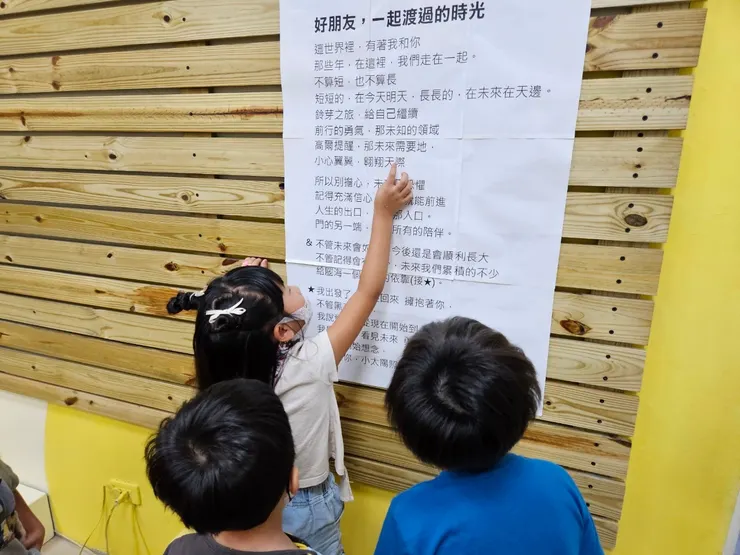 好朋友，一起渡過的時光
這世界裡，有著我和你
那些年，在這裡，我們走在一起。
不算短，也不算長
短短的，在今天明天，長長的，在未來在天邊。
鈴芽之旅，給自己繼續
前行的勇氣，那未知的領域
高爾提醒，那未來需要地，
小心翼翼，翱翔天際
所以別擔心，未 懼
記得充滿信心 就能前進
人生的出口， 那入口。
門的另一端， 所有的陪伴。
& 不管未來會如 今後這是會順利長大
不管記得會 未來我們累積的不少
給腦海一個 的依靠(接★)。
★我出發了 回來 擁抱著你，
不管 
我 從現在開始到
看見未來
始想念，
你，小太陽